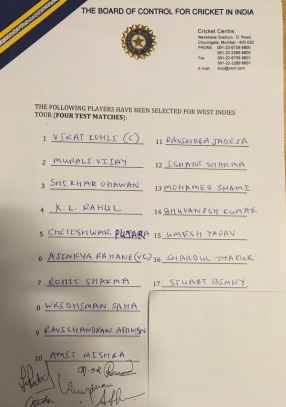 THE BOARD OF CONTROL FOR CRICKET IN INDIA
Cricket Centre,
Wankhede Stadium, 'D' Road
Churchgate, Mumbai - 400 020
PHONE : 091-22-6759 8800
091-22-2289 8800
Fax : 091-22-6759 8801
091-22-2289 8801
E-mail : bcci@vsnl.com
THE FOLLOWING PLAYERS HAVE BEEN SELECTED FOR WEST INDIES
TOUR (FOUR TEST MATCHES):
1 VIRAT KOHLI (C)
2 MURALI VIJAY
3 SHIKHAR DHAWAN
4 K.L. RAHUL
5 CHETESHWAR PUJARA
6 AJINKYA RAHANE (VC)
7 ROHIT SHARMA
8 WRIDHIMAN SAHA
9 RAVICHANDRAN ASHWIN
10 AMIT MISHRA
11 RAVINDRA JADEJA
12 ISHANT SHARMA
13 MOHAMED SHAMI
14 BHUVANESH KUMAR
15 UMESH YADAV
16 SHARDUL THAKUR
17 STUART BINNY